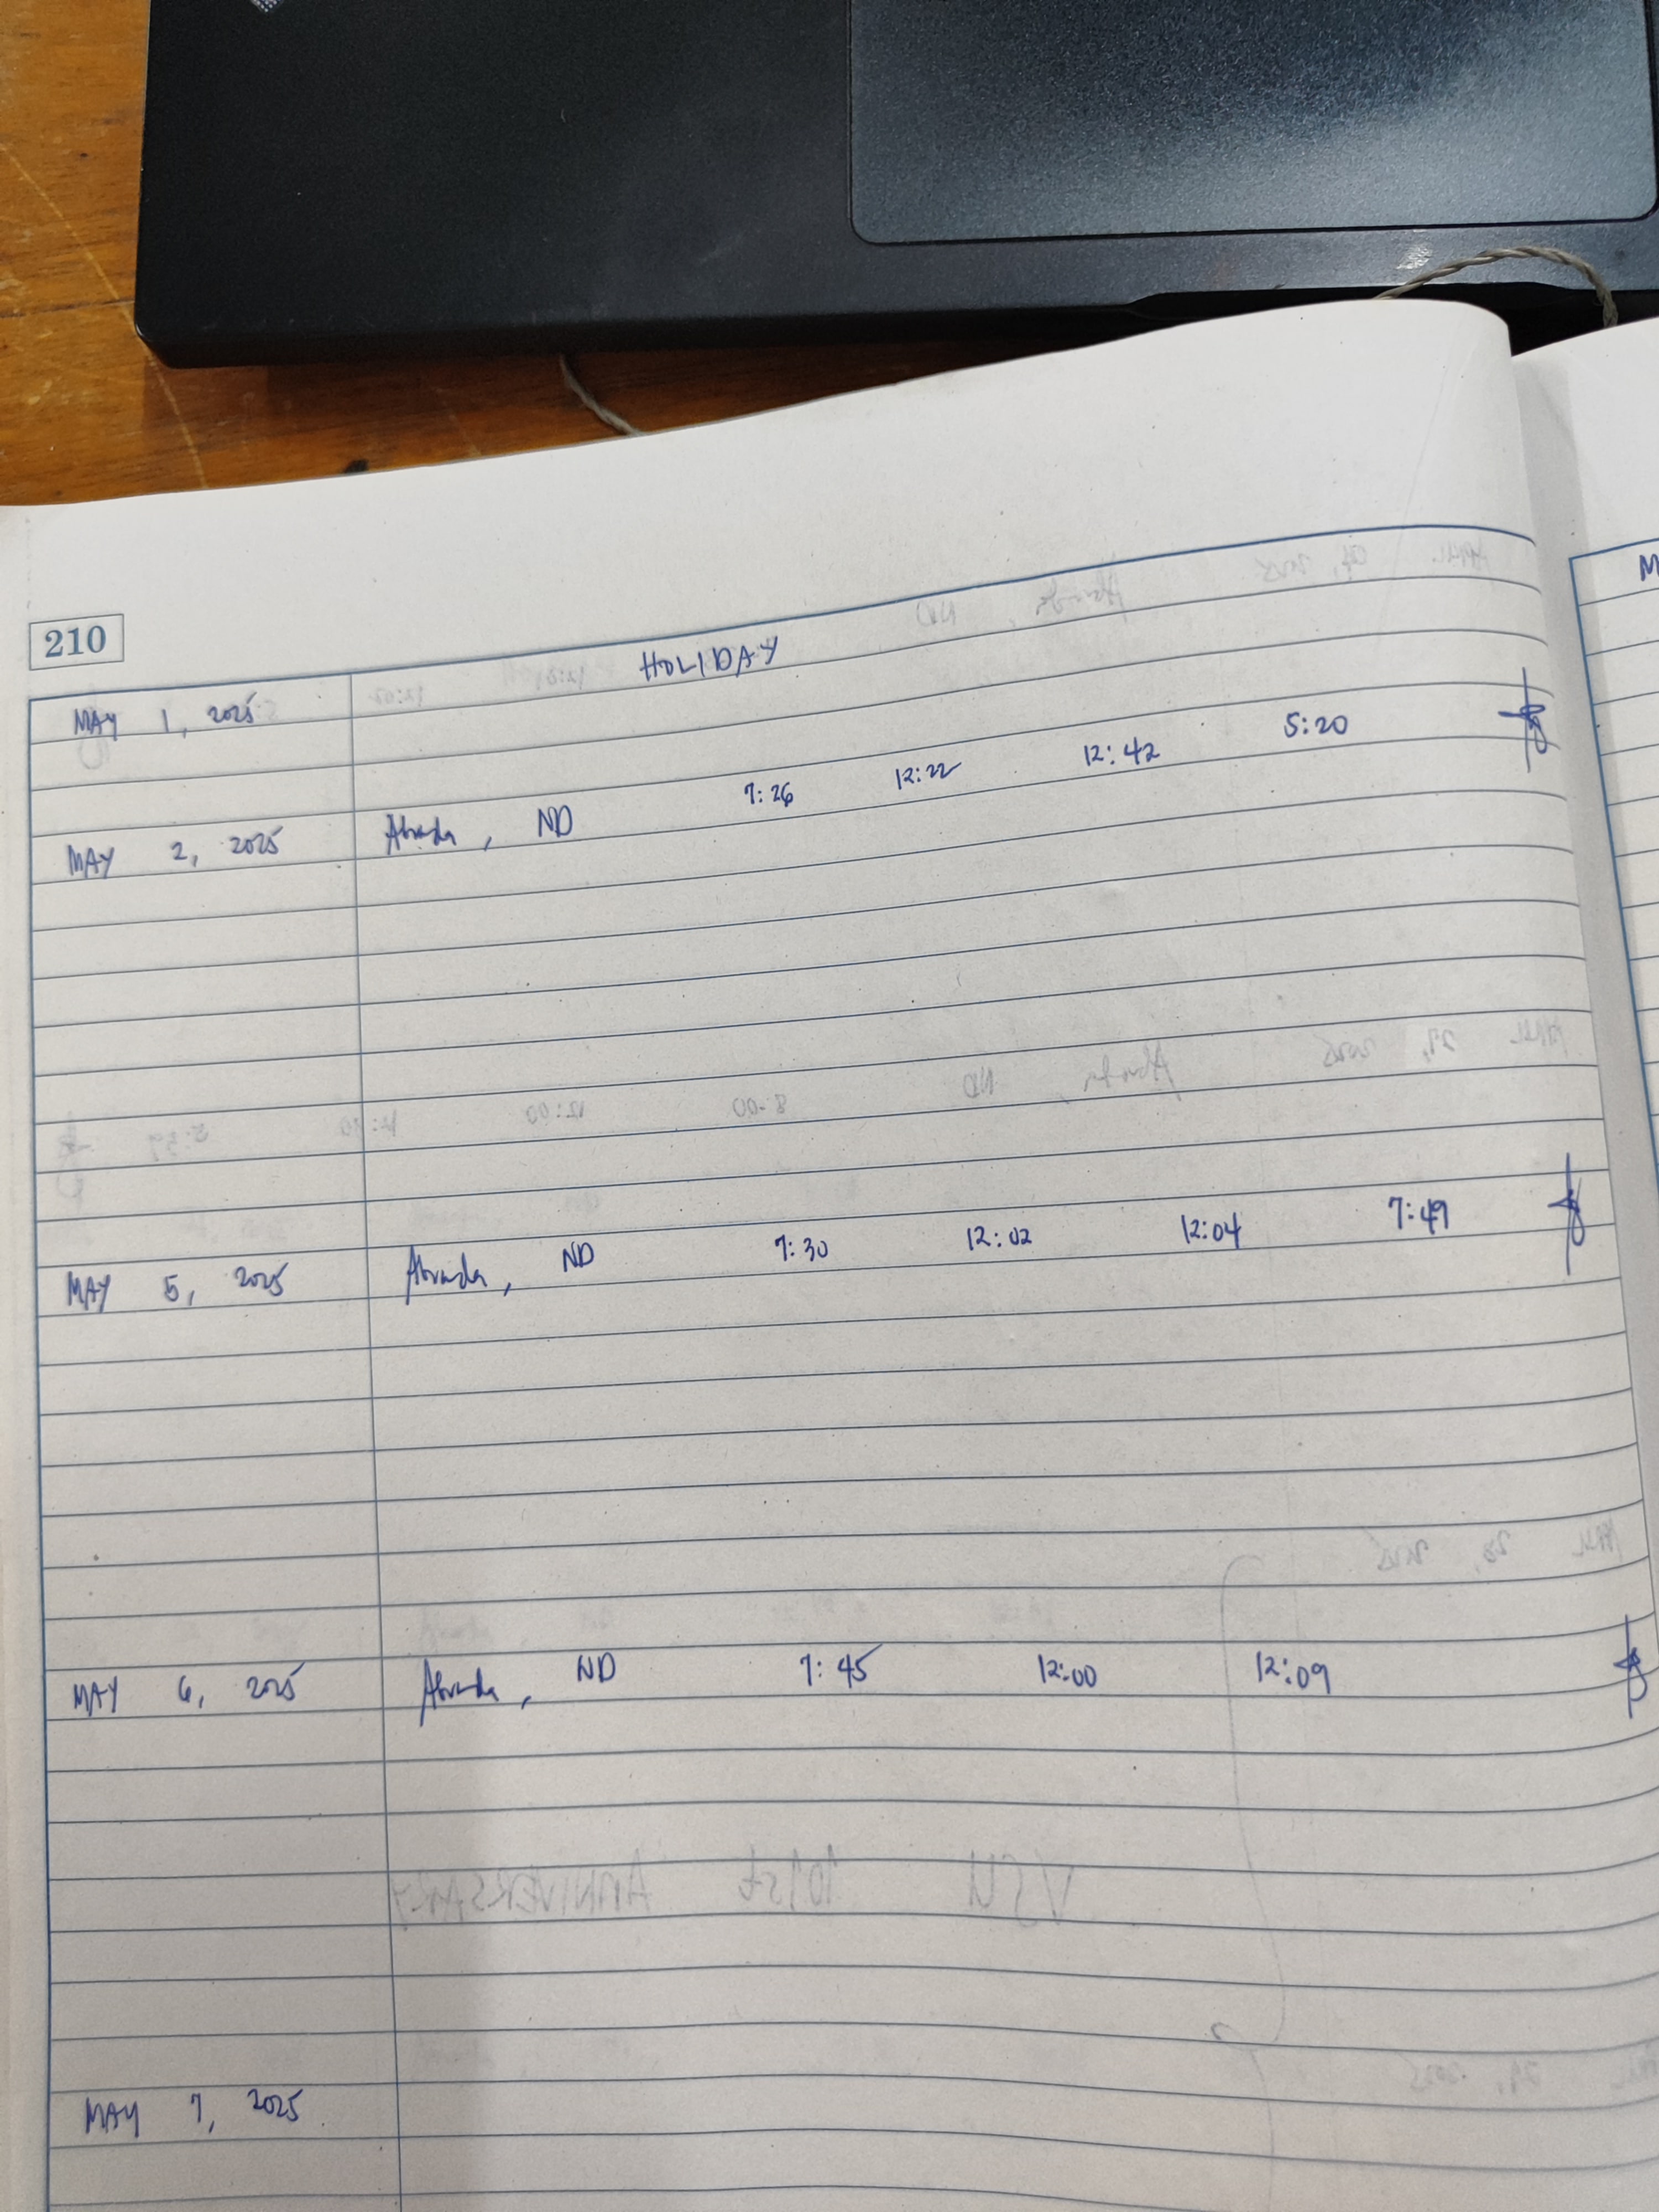 210
HOLIDAY
MAY 1, 2025
MAY 2, 2025 , ND 7:26 12:22 12:42 5:20
MAY 5, 2025 , ND 7:30 12:02 12:04 7:49
MAY 6, 2025 , ND 7:45 12:00 12:09
VSU 101st ANNIVERSARY
MAY 7, 2025